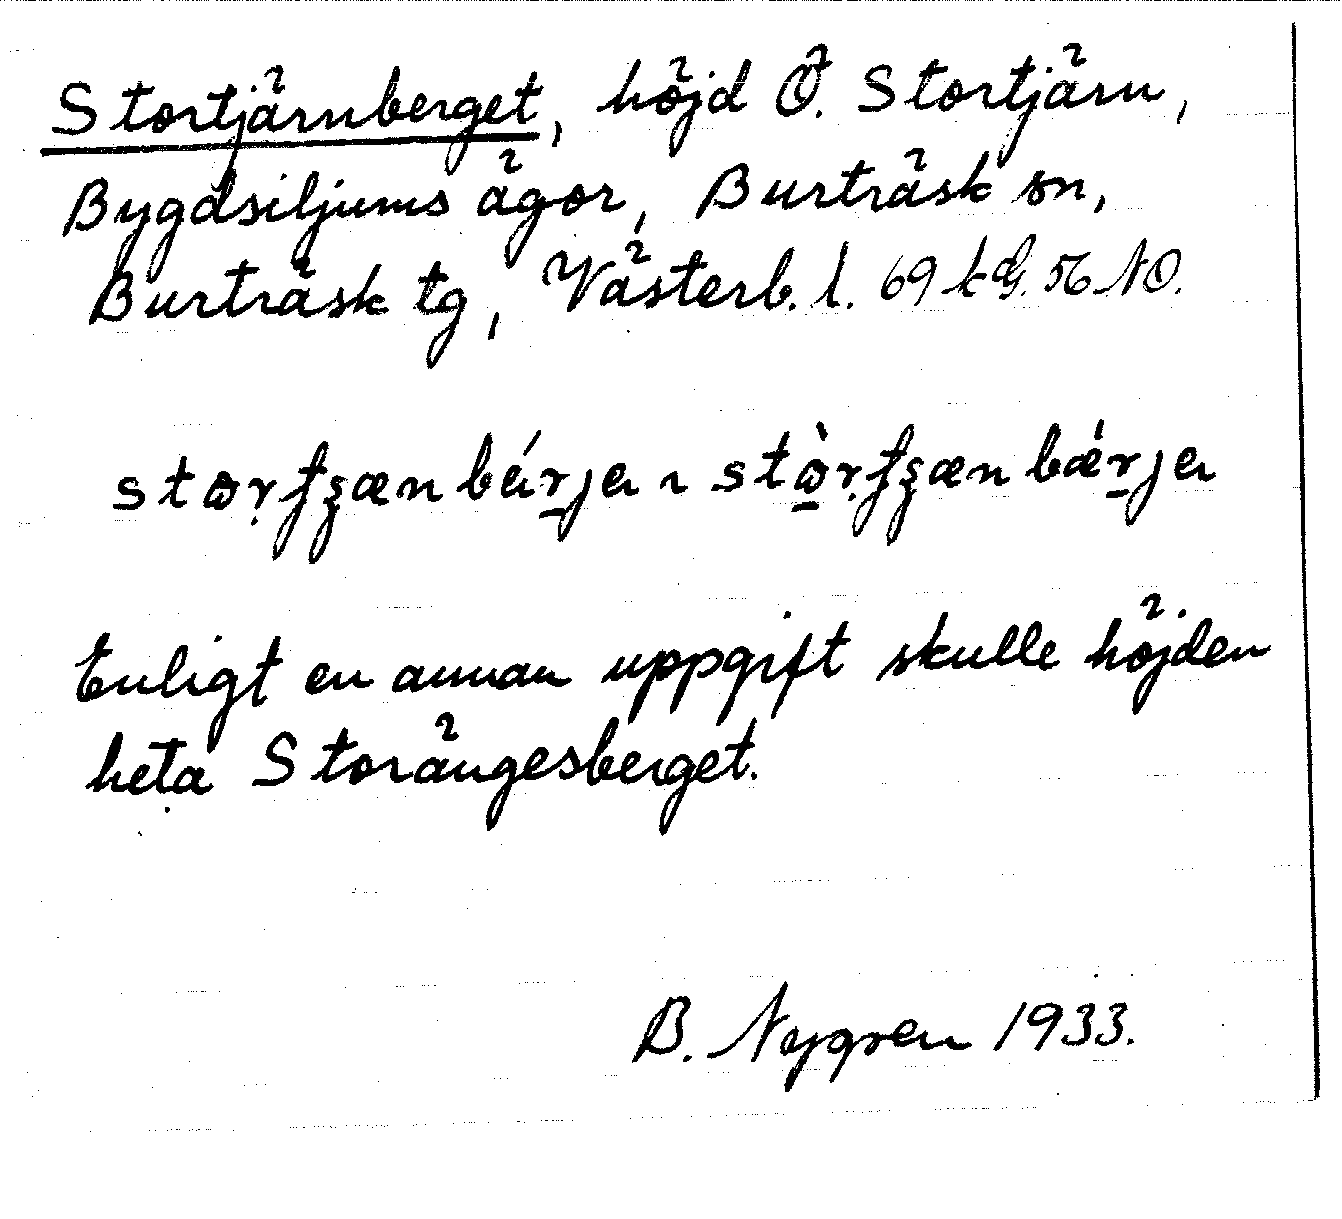 Stortjärnberget, höjd Ö. Stortjärn,
Bygdsiljums ägor, Burträsk sn,
Burträsk tg, Västerb. l. 69 kG. 56 NO.
Enligt en annan uppgift skulle höjden
heta Storängesberget.
B. Nygren 1933.